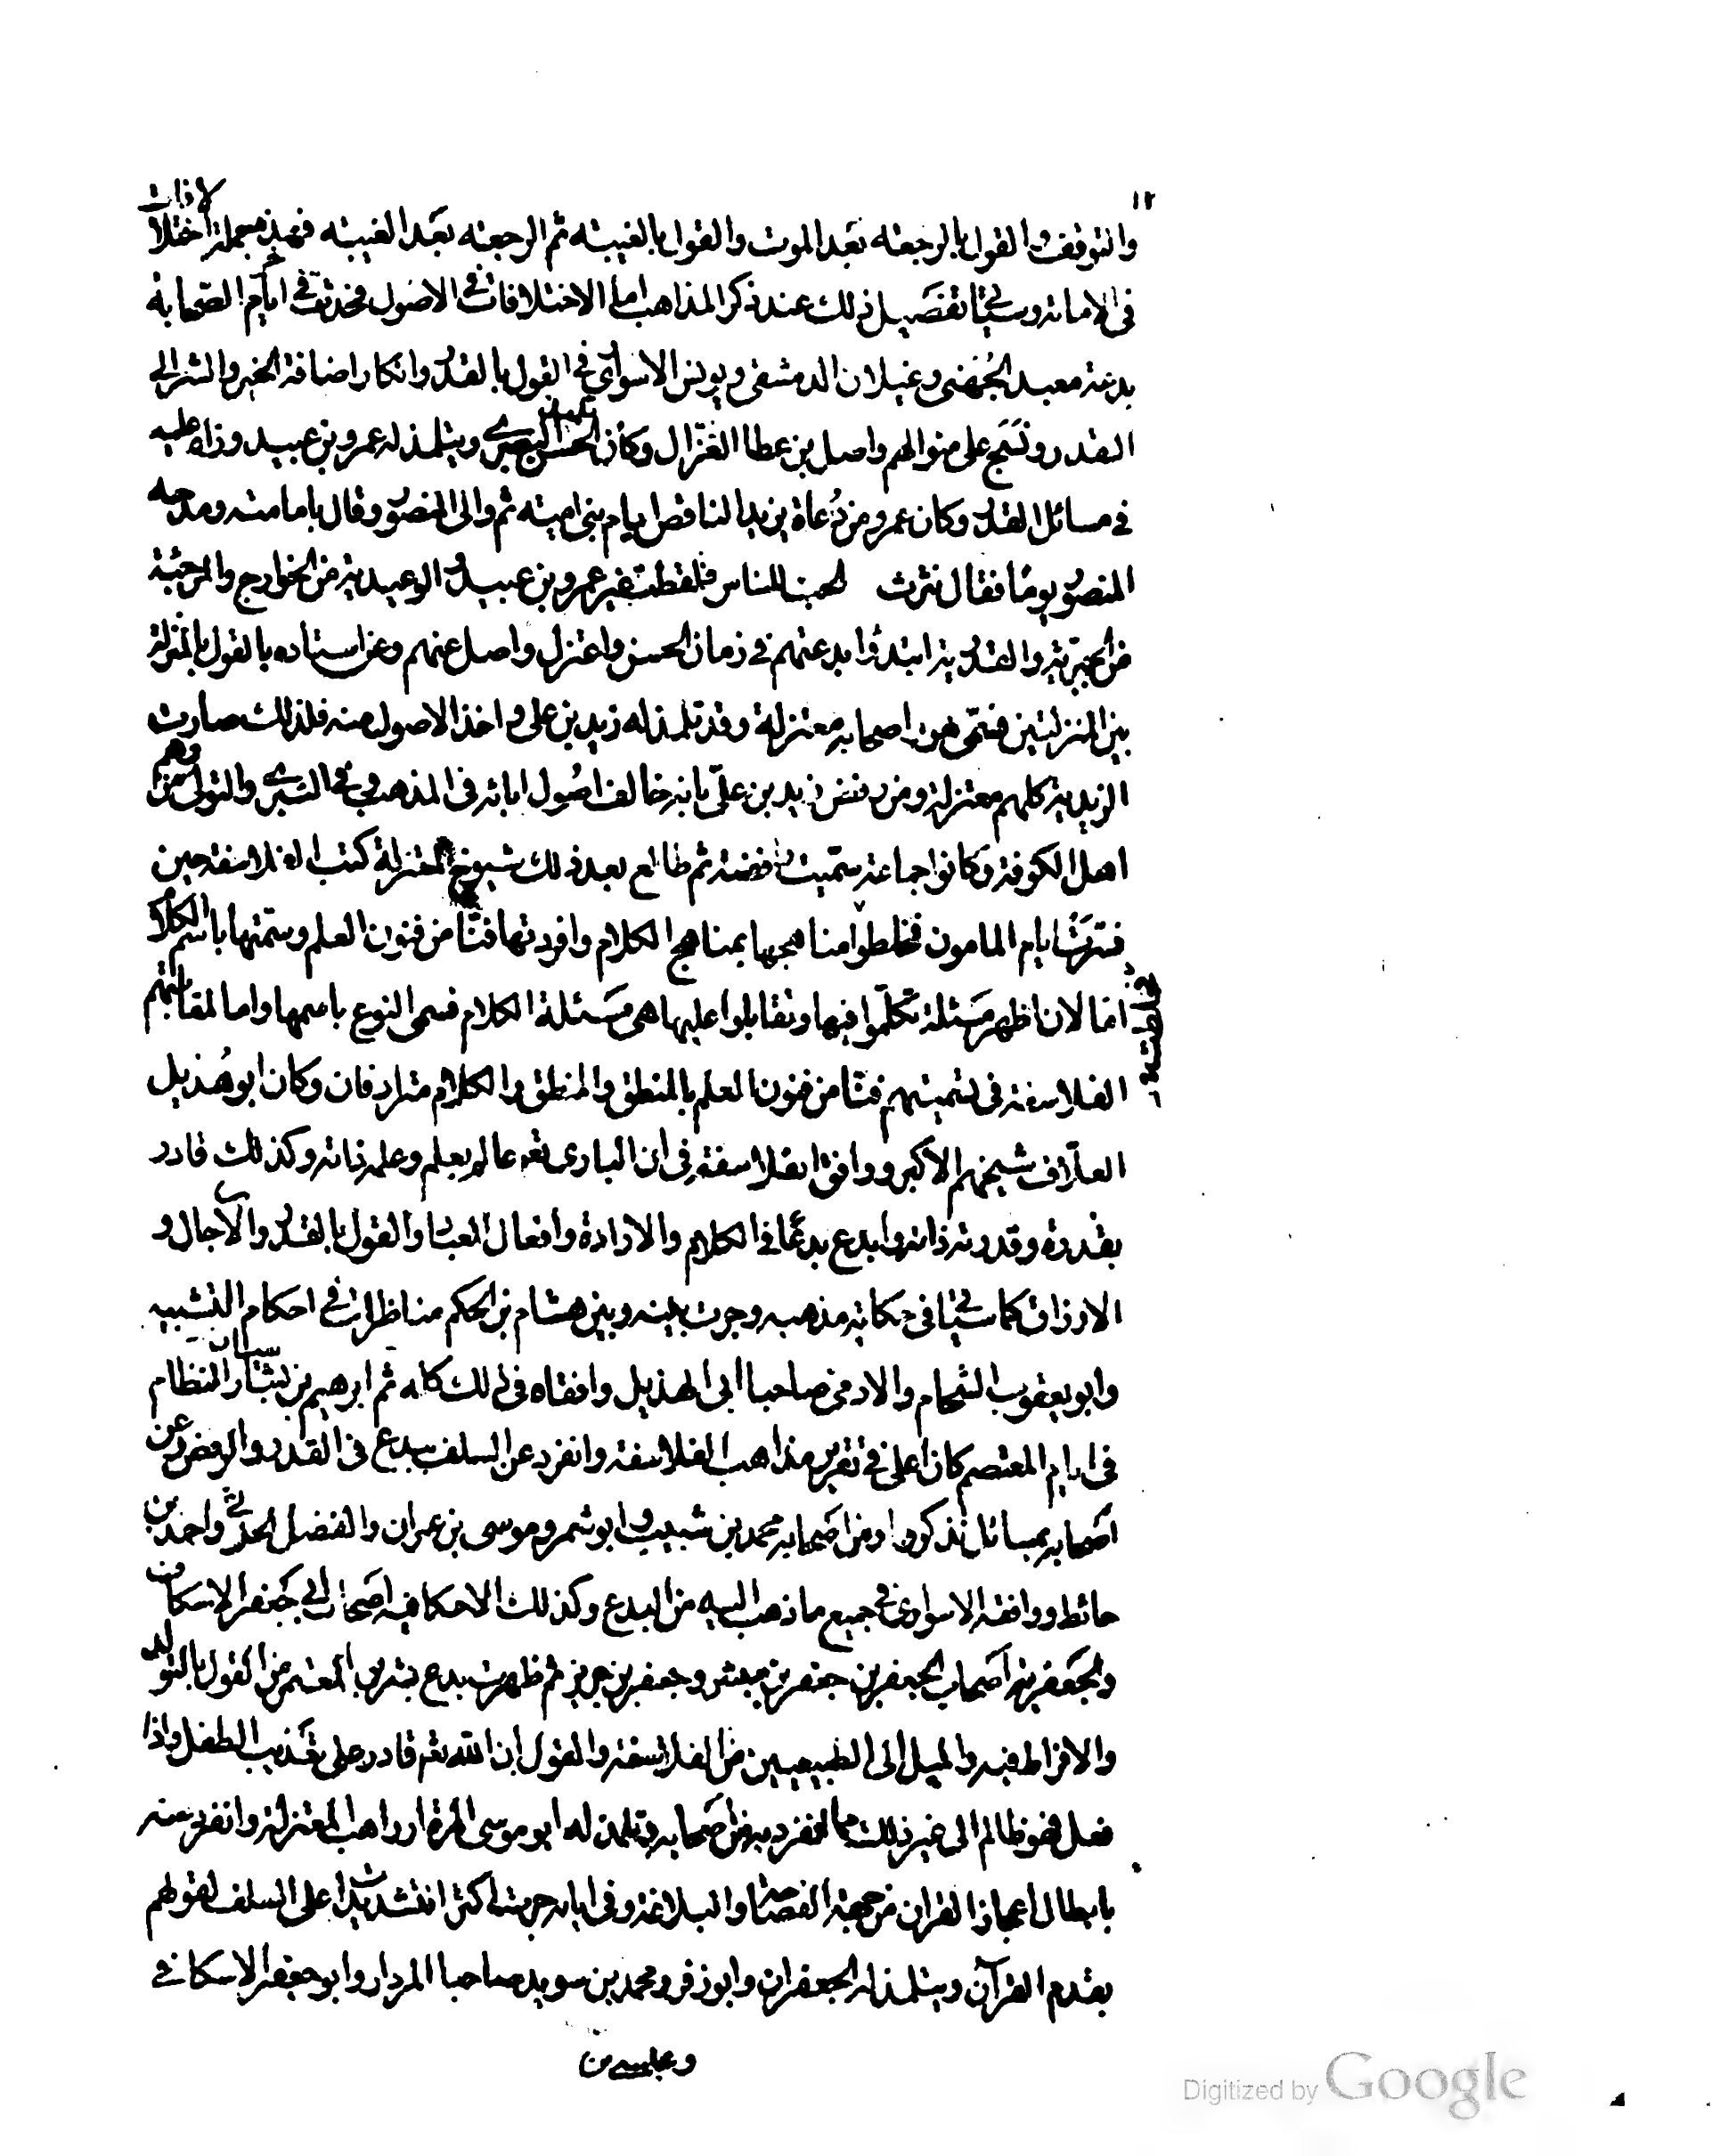 ١٢
والتوقف والقول بالرجعة بعد الموت والقول بالغيبة ثم الرجعة بعد الغيبة فهذه جملة اختلافات
في الامامة وسيأتي تفصيل ذلك عند ذكر المذاهب اما الاختلافات في الاصول فحدثت في اخر ايام الصحابة
بدعة معبد الجُهَنى وغيلان الدمشقى ويونس الاسوارى في القول بالقدر وانكار اضافة الخير والشر الى
القدر ونسَج على منوالهم واصل بن عطا الغزّال وكان تلميذ الحسن البصرى وتلمذ له عمرو بن عبيد وزاد عليه
في مسائل القدر وكان عمرو من دُعاة يزيد الناقص ايام بنى امية ثم والى المنصور وقال بامامته ومدحه
المنصور يومًا فقال نثرت الحب للناس فلقطت غير عمرو بن عبيد والوعيدية من الخوارج والمرجئة
من الجبرية والقدرية ابتدؤا بدعتهم في زمان الحسن واعتزل واصل عنهم وعن استاده بالقول بالمنزلة
بين المنزلتين فسمّى هو واصحابه معتزلة وقد تلمذ له زيد بن على واخذ الاصول منه فلذلك صارت
الزيدية كلهم معتزلة ومن رفض زيد بن علىّ بانه خالف اصُول ابائه في المذهب وفي التبرى والتولى وهم من
اهل الكوفة وكانوا جماعة سمّيت رافضة ثم طالع بعد ذلك شيوخ المعتزلة كتب الفلاسفة حين
فسّرت ايام المامون فخلطوا مناهجها بمناهج الكلام وافردتها فنّا من فنون العلم وسمّتها باسم الكلام
اما لان اظهر مَسْئلة تكلّموا فيها وتقابلوا عليها هى مَسْئلة الكلام فسمى النوع باسمها واما لمقابلتهم
الفلاسفة في تسميتهم فنّا من فنون العلم بالمنطق والمنطق والكلام مترادفان وكان ابو هُذيل
العلّاف شيخهم الاكبر ووافق الفلاسفة في ان البارى تعـ عالم بعلم وعلمه ذاته وكذلك قادر
بقدرة وقدرته ذاته وابدع بدعًا في الكلام والارادة وافعال العباد والقول بالقدر والآجال و
الارزاق كما سيأتي في حكاية مذهبه وجرت بينه وبين هشام بن الحكم مناظرات في احكام التشبيه
وابو يعقوب الشحام والادمى صاحبا ابى الهذيل وافقاه في ذلك كله ثم ابرهيم بن سيّار النظام
في ايام المعتصم كان اعلى في تقرير مذاهب الفلاسفة وانفرد عن السلف ببدع في القدر والرفض وعن
اصحابه بمسائل نذكرها ومن اصحابه محمد بن شبيب وابو شمر وموسى بن عمران والفضل الحدثى واحمد بن
حائط ووافقه الاسوارى في جميع ما ذهب اليه من البدع وكذلك الاسكافية اصحاب ابى جعفر الاسكافى
والجعفرية اصحاب الجعفرين جعفر بن مبشر وجعفر بن حرب ثم ظهرت بدع بشر بن المعتمر من القول بالتولد
والافراط فيه والميل الى الطبيعيين من الفلاسفة والقول بان الله تعـ قادر على تعذيب الطفل واذا
فعل فهو ظالم الى غير ذلك مما تفرد به من اصحابه وتلمذ له ابو موسى المزدار راهب المعتزلة وانفرد عنه
بابطال اعجاز القران من جهة الفصاحة والبلاغة وفي ايامه جرت اكثر التشديدات على السلف لقولهم
بقدم القرآن وتلمذ له الجعفران وابو زفر ومحمد بن سويد صاحبا المردار وابو جعفر الاسكافى
وعيسى بن
Digitized by Google